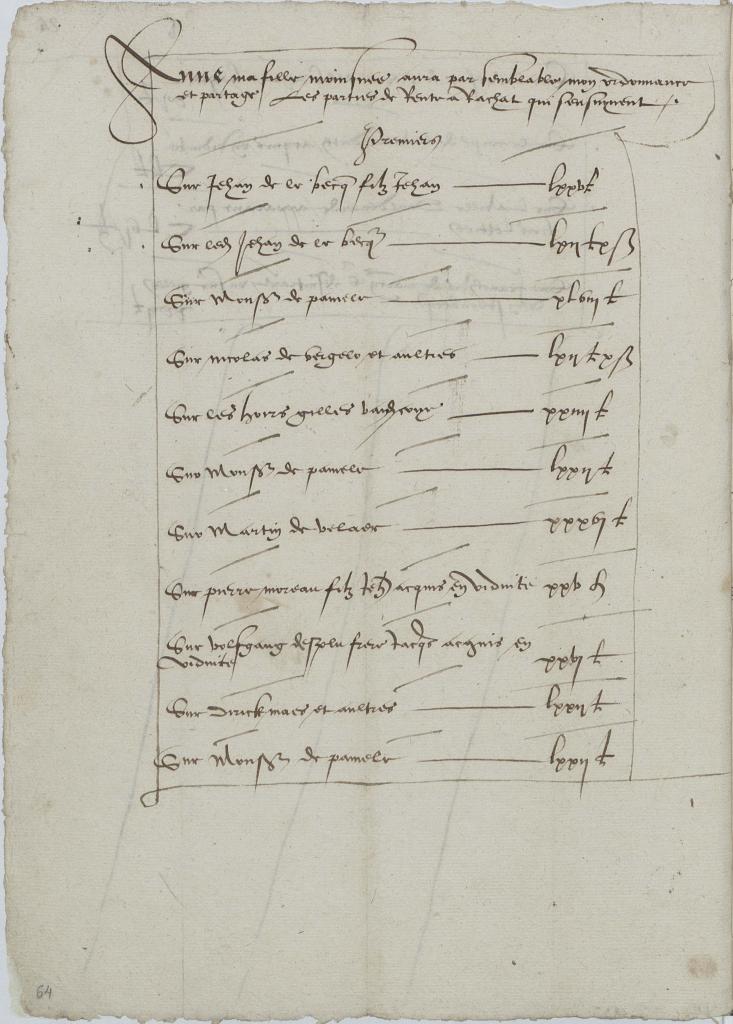 Anne ma fille moinsnee aura par semblable mon ordonnance
et partage Les parties de Rente a Rachat qui sensuivent
Premiers
Sur Jehan de le becq filz Jehan lxxv £
Sur led Jehan de le becq lxii £ x s
Sur Mons de pamele xlviii £
Sur nicolas de bergelo et aultres lxii £ x s
Sur les hoirs gilles xxiiii £
Sur Mons de pamele lxxii £
Sur Martin de velaer xxxvi £
Sur pierre moreau filz Jeh acquis en viduite xxv
Sur volfgang frere Jacqs acquis en
viduite xxvi £
Sur Dirick maes et aultres lxxii £
Sur Mons de pamele lxxii £
64